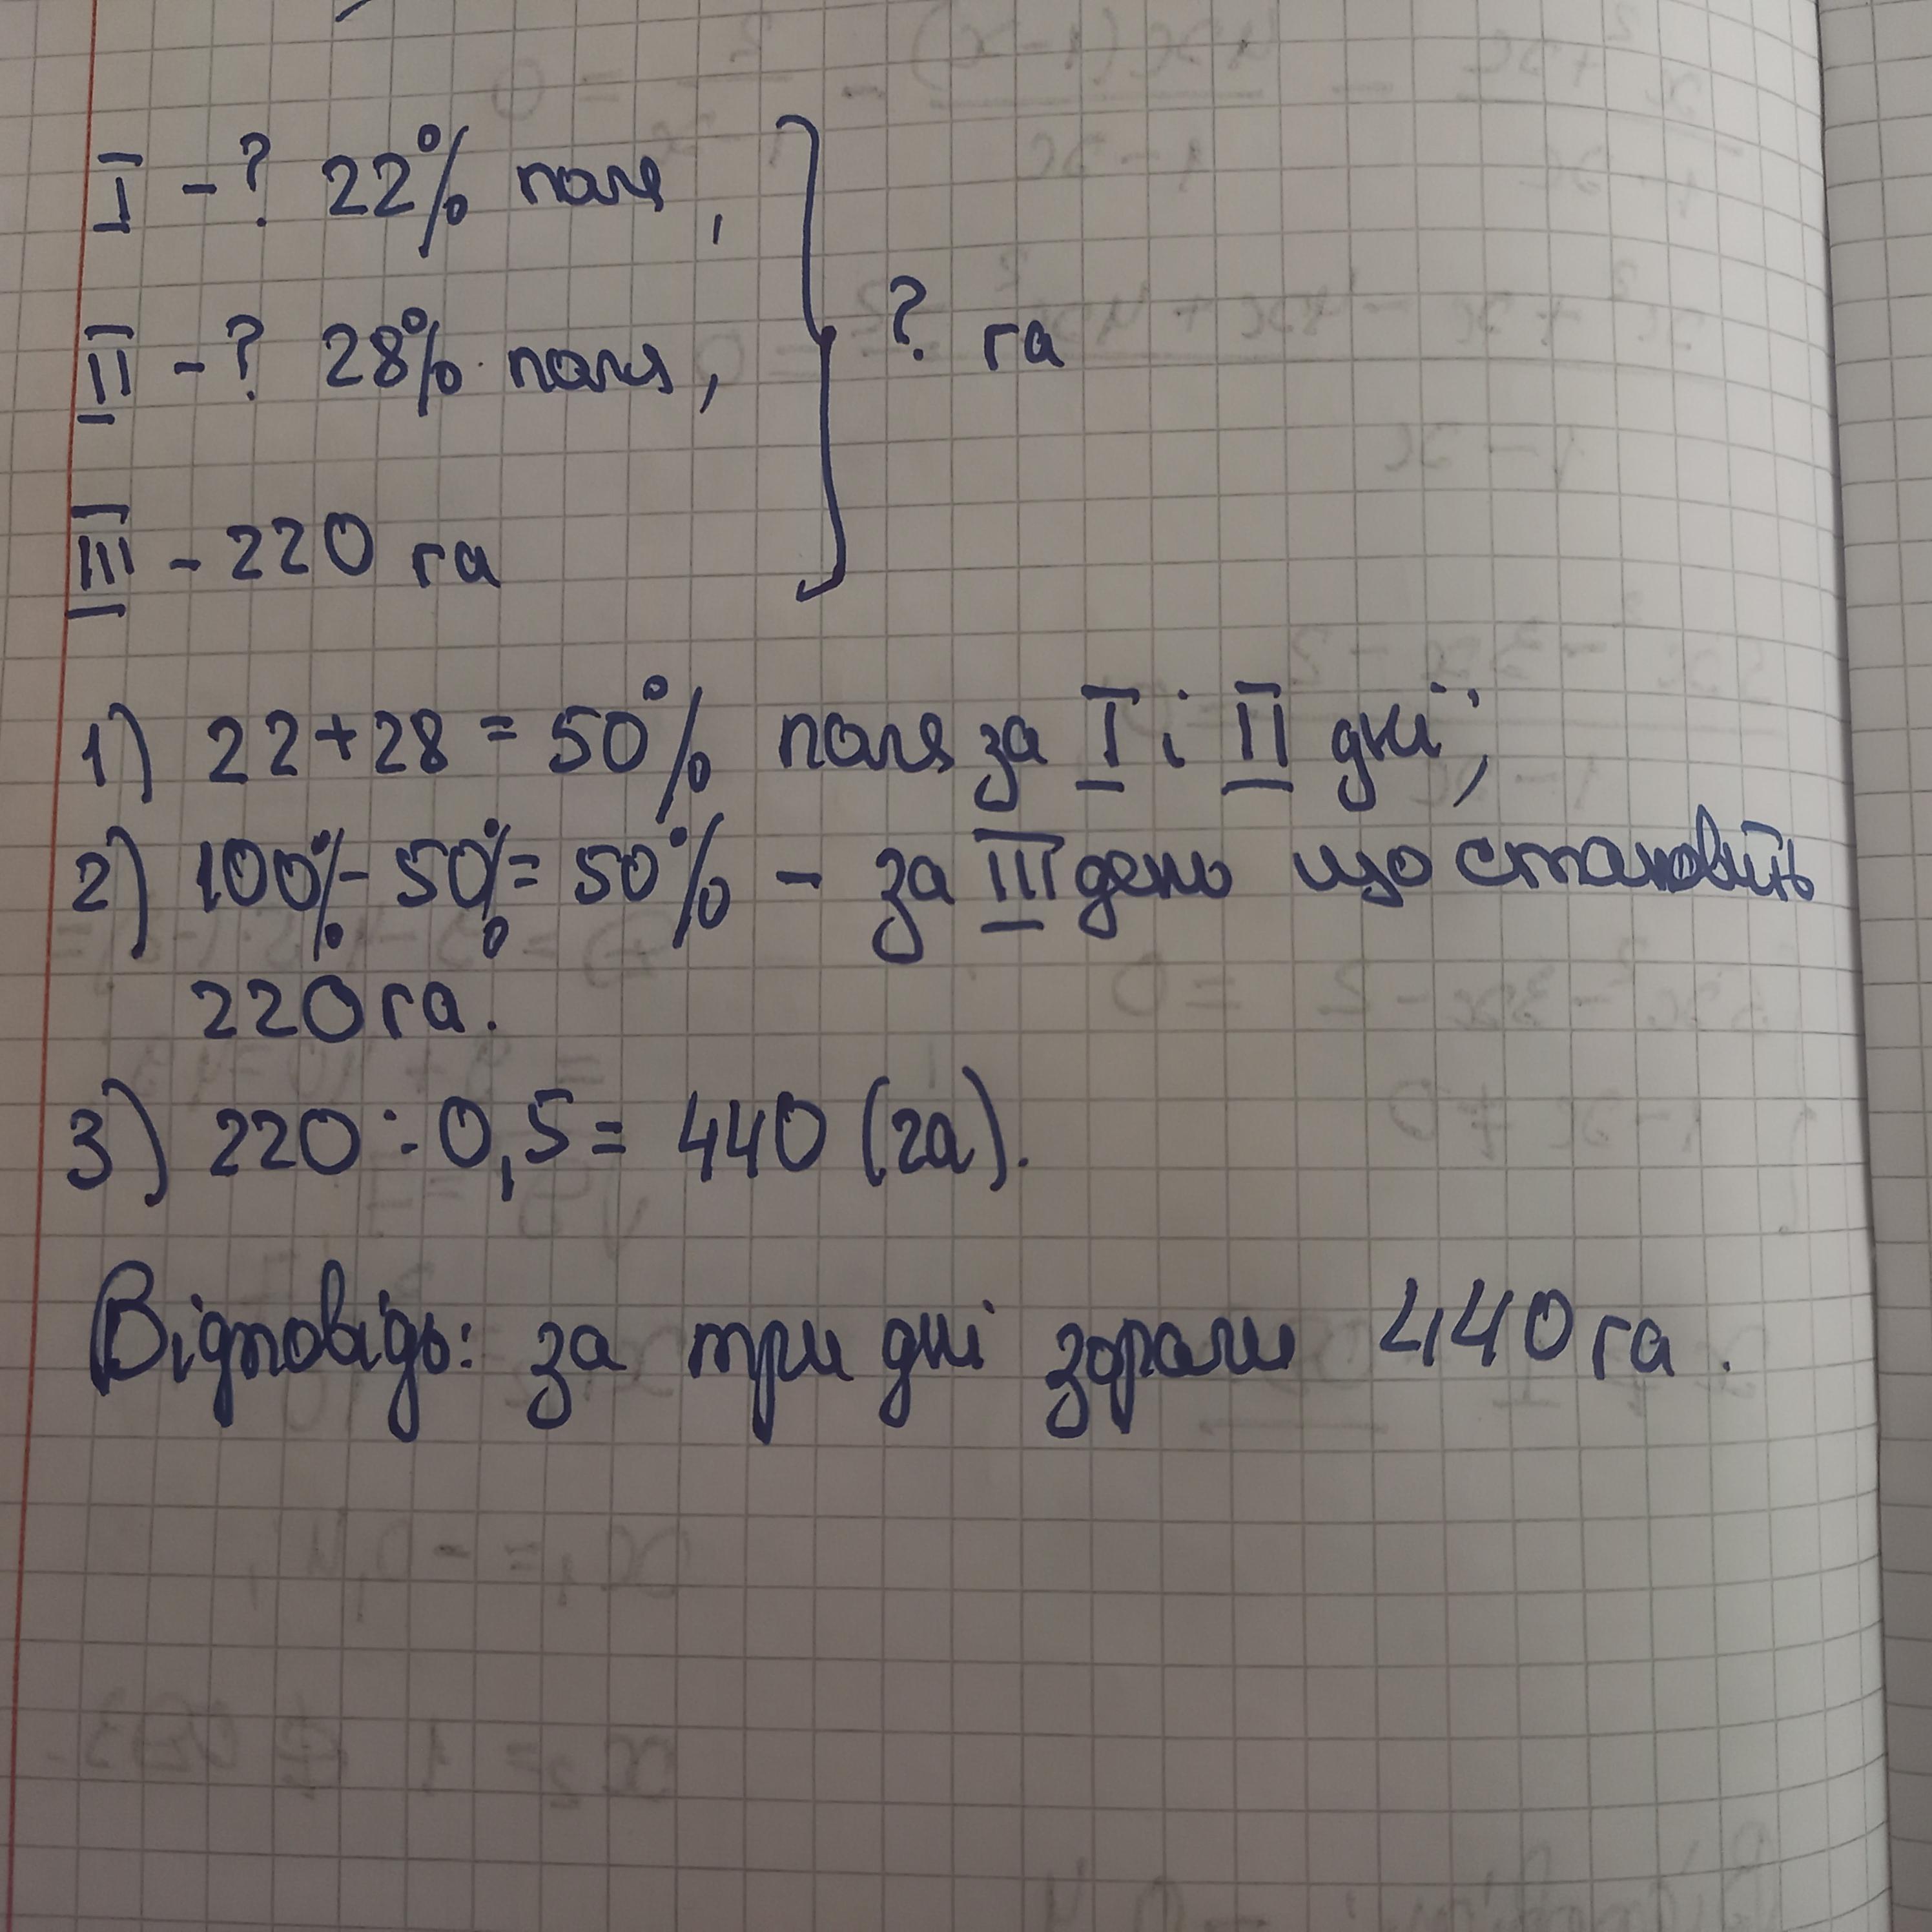 I - ? 22% поля,
II - ? 28% поля,
? га
III - 220 га
1) 22 + 28 = 50% поля за I і II дні;
2) 100% - 50% = 50% - за III день що становить
220 га.
3) 220 : 0,5 = 440 (га).
Відповідь: за три дні зорали 440 га.